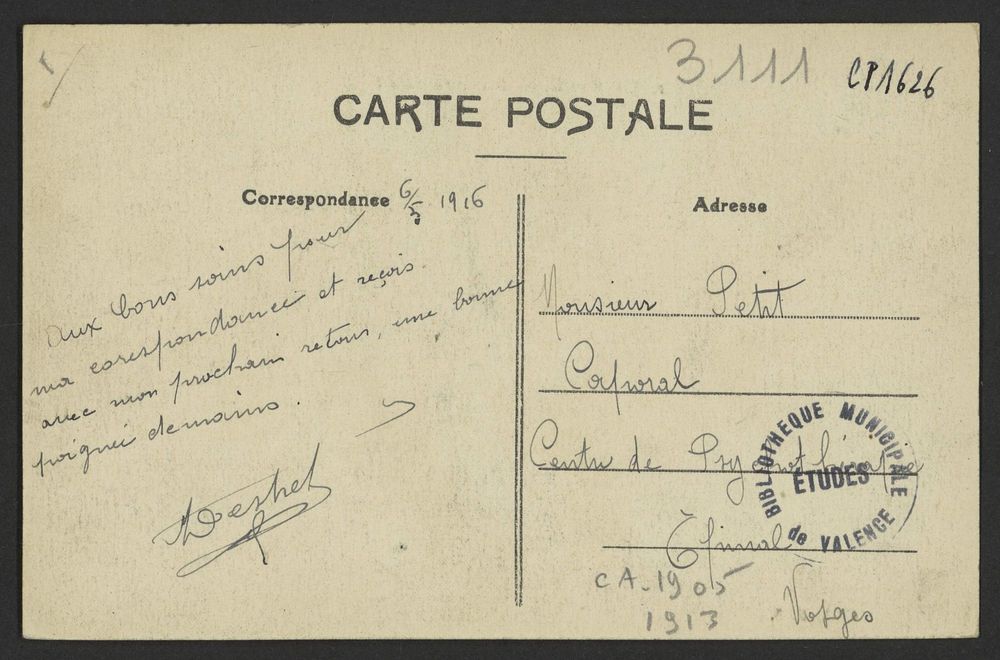 3111
CP1626
CARTE POSTALE
Correspondance 6/5 1916
aux bons soins pour
ma corespondance et reçois
avec mon prochain retour, une bonne
poignei demains.
Adresse
Monsieur Petit
Caporal
Centre de
Épinal
Vosges
BIBLIOTHEQUE MUNICIPALE
ETUDES
de VALENCE
CA-1905
1913